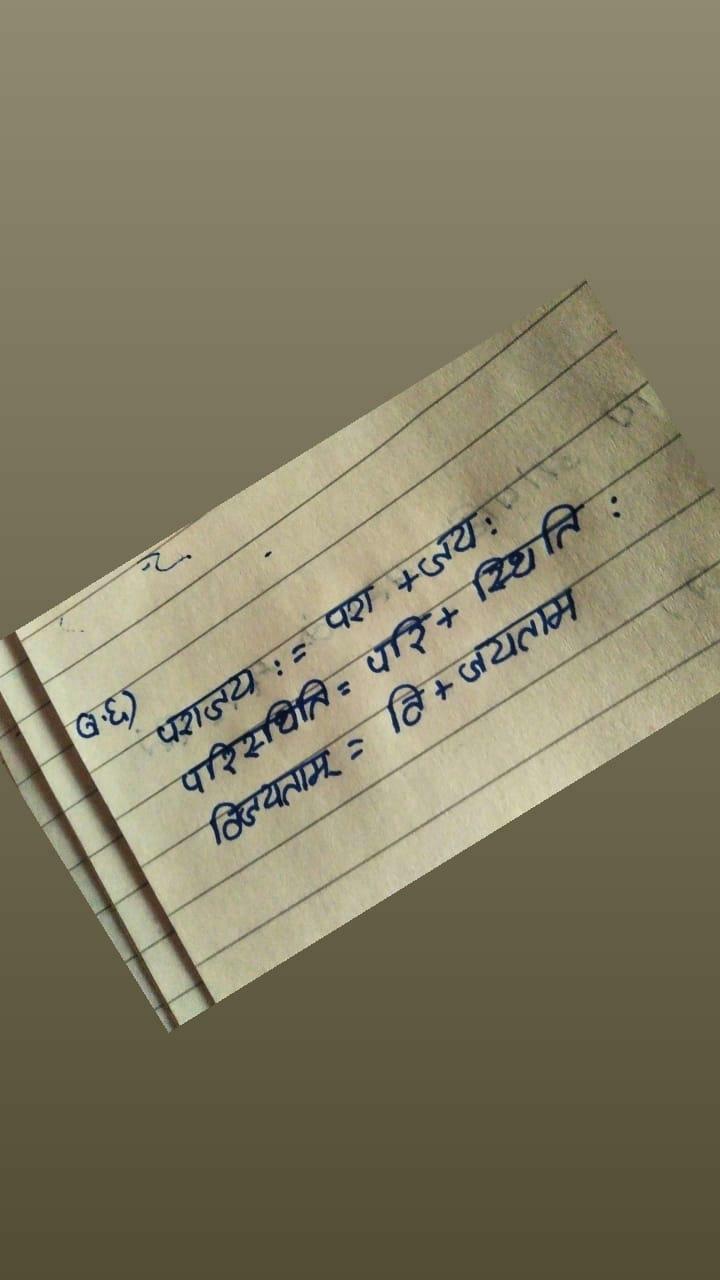 ७.६)
पराजय := परा + जय:
परिस्थिति = परि + स्थिति :
विजयताम् = वि + जयताम